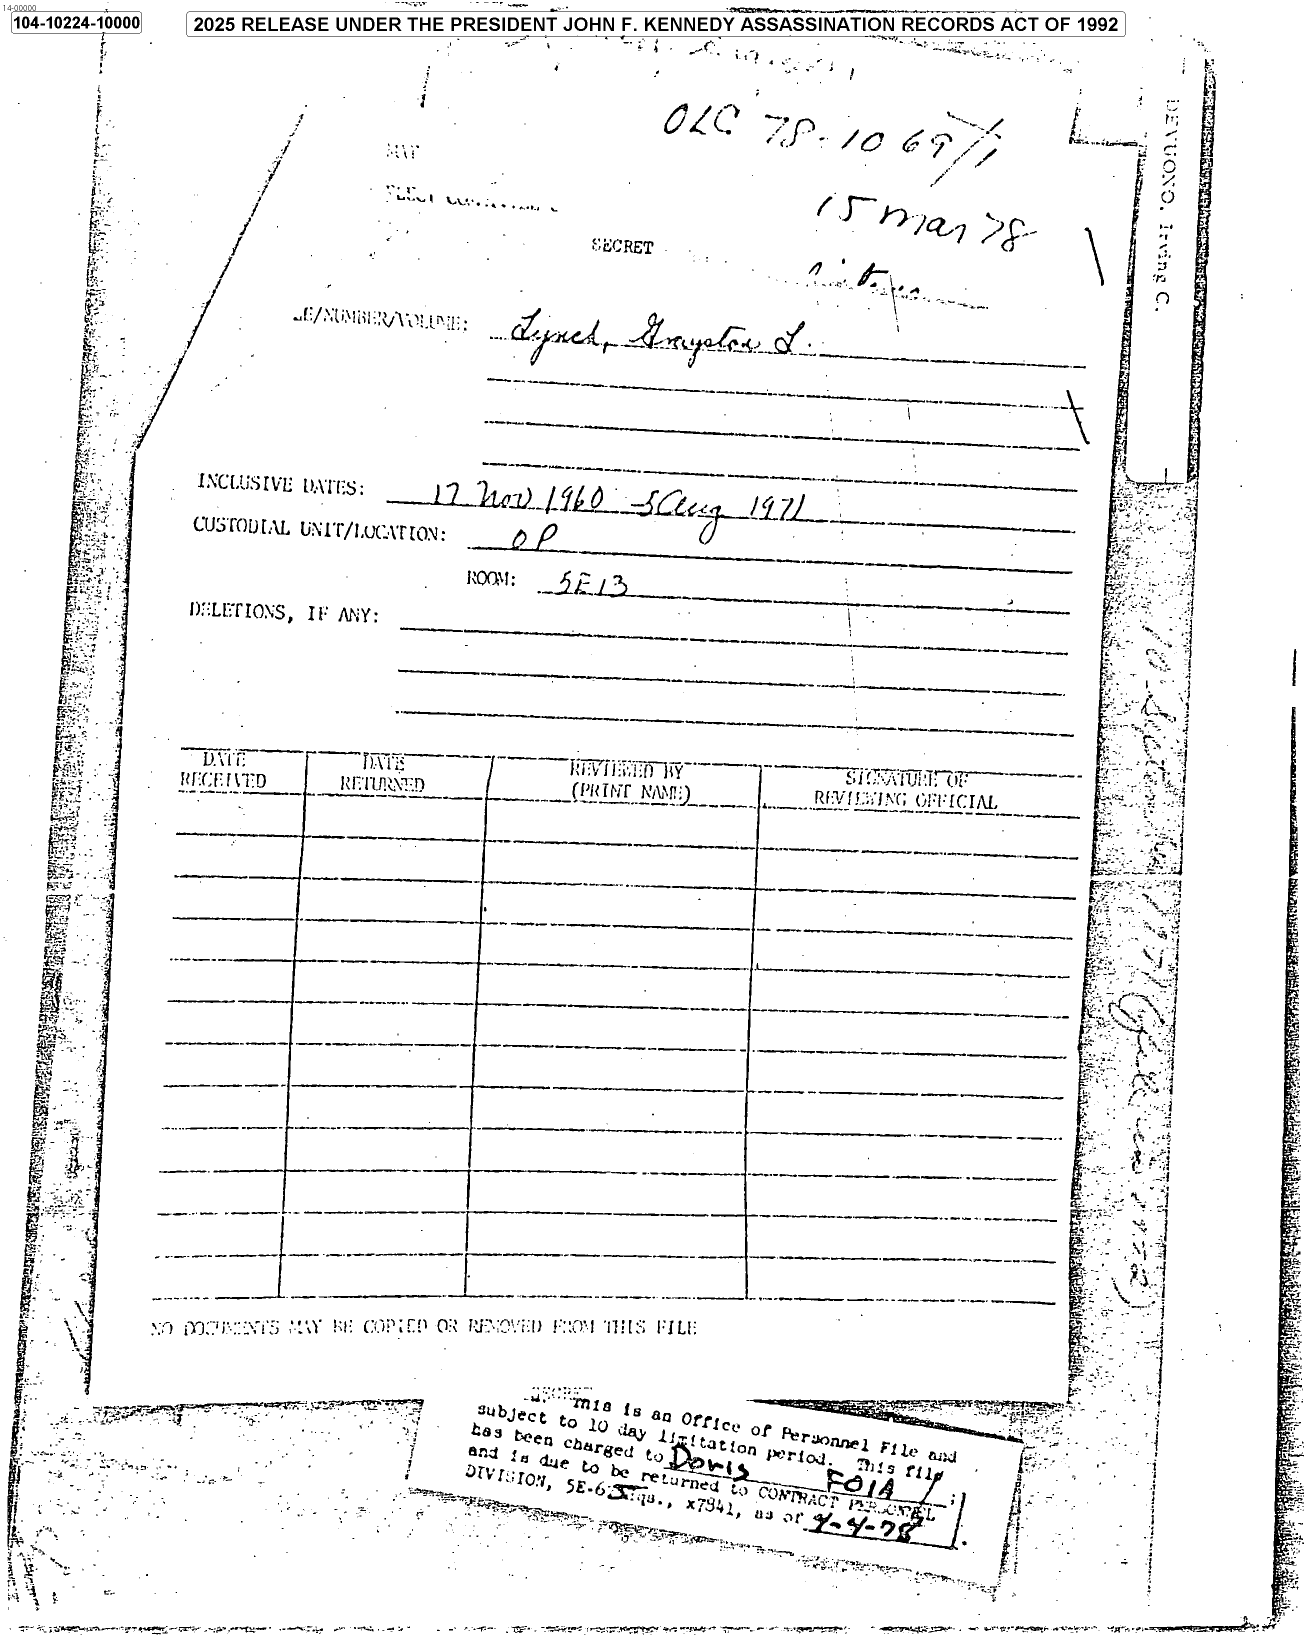 14-00000
104-10224-10000
2025 RELEASE UNDER THE PRESIDENT JOHN F. KENNEDY ASSASSINATION RECORDS ACT OF 1992
OLC 78-1069/1
15 Mar 78
SECRET
DEVUONO, Irving C.
E/NUMBER/VOLUME: Lynch, Grayston L.
INCLUSIVE DATES: 17 Nov 1960 5 Aug 1971
CUSTODIAL UNIT/LOCATION: OP
ROOM: 5E13
DELETIONS, IF ANY:
DATE RECEIVED
DATE RETURNED
REVIEWED BY (PRINT NAME)
SIGNATURE OF REVIEWING OFFICIAL
NO DOCUMENTS MAY BE COPIED OR REMOVED FROM THIS FILE
SECRET
This is an Office of Personnel File and
subject to 10 day limitation period. This file
has been charged to Doris FOIA ;
and is due to be returned to CONTRACT PERSONNEL
DIVISION, Hqs., x7941, as of 4-4-78.